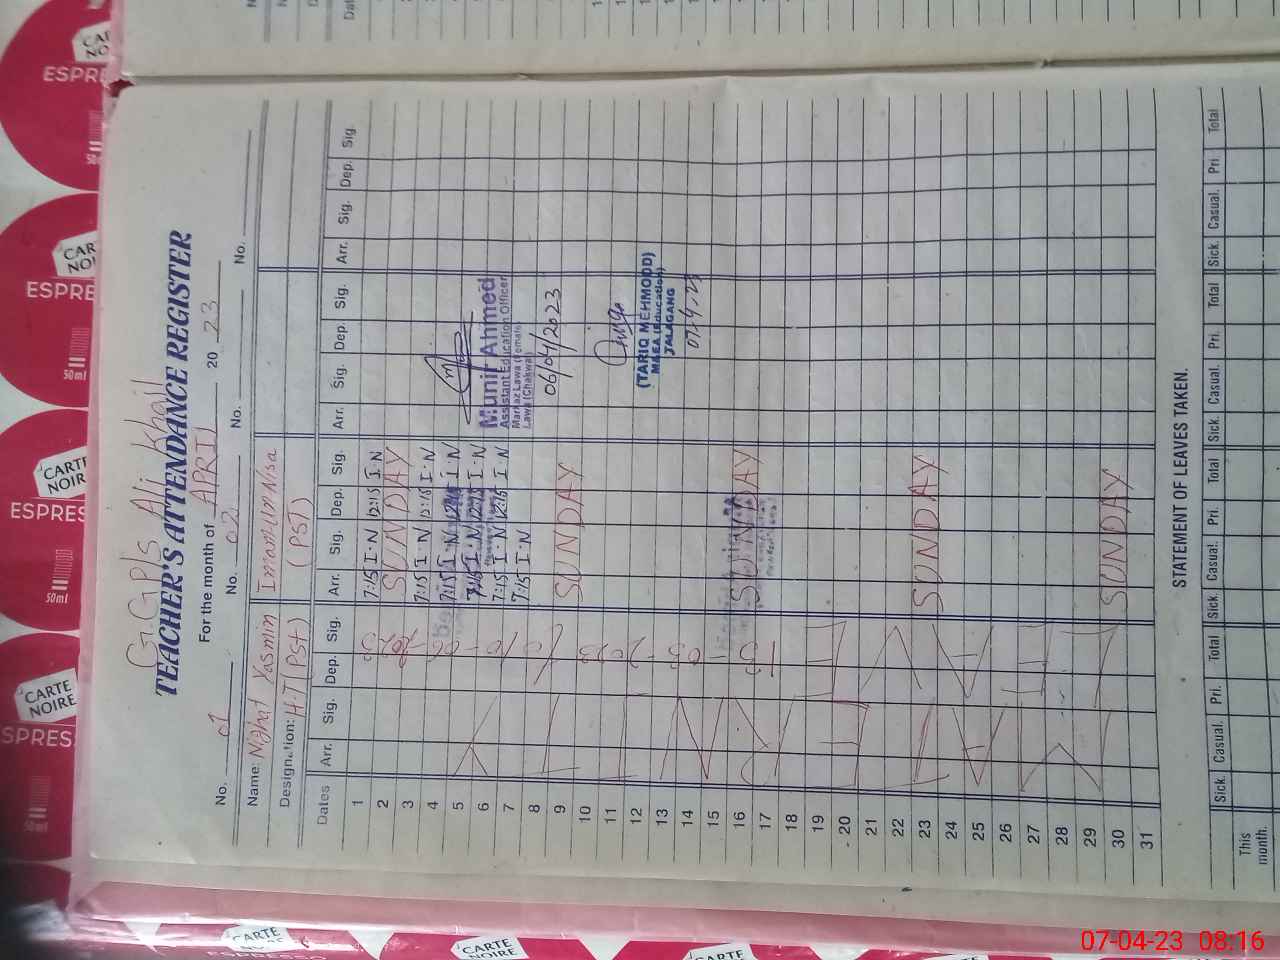 G.G.P/s Ali Khail
TEACHER'S ATTENDANCE REGISTER
For the month of APRIL 20 23
No. 01 No. 02 No. No.
Name: Nighat Yasmin Imam-un-Nisa
Designation: H.T (PST) (PST)
Dates Arr. Sig. Dep. Sig. Arr. Sig. Dep. Sig. Arr. Sig. Dep. Sig. Arr. Sig. Dep. Sig.
1 7:15 I.N 12:15 I.N
2 SUNDAY
3 7:15 I.N 12:15 I.N
4 7:15 I.N 12:15 I.N
5 7:15 I.N 12:15 I.N
6 7:15 I.N 12:15 I.N
7 7:15 I.N
8
9 SUNDAY
10
11
12
13
14
15
16 SUNDAY
17
18
19
20
21
22
23 SUNDAY
24
25
26
27
28
29
30 SUNDAY
31
Munir Ahmed
Assistant Education Officer
Markaz Lawa (Female)
Lawa (Chakwal)
06/04/2023
(TARIQ MEHMOOD)
MAEA (Education)
JALAGANG
07-4-23
STATEMENT OF LEAVES TAKEN.
Sick. Casual. Pri. Total Sick. Casual. Pri. Total Sick. Casual. Pri. Total Sick. Casual. Pri. Total
This month.
CARTE NOIRE
ESPRESSO
50ml
07-04-23 08:16